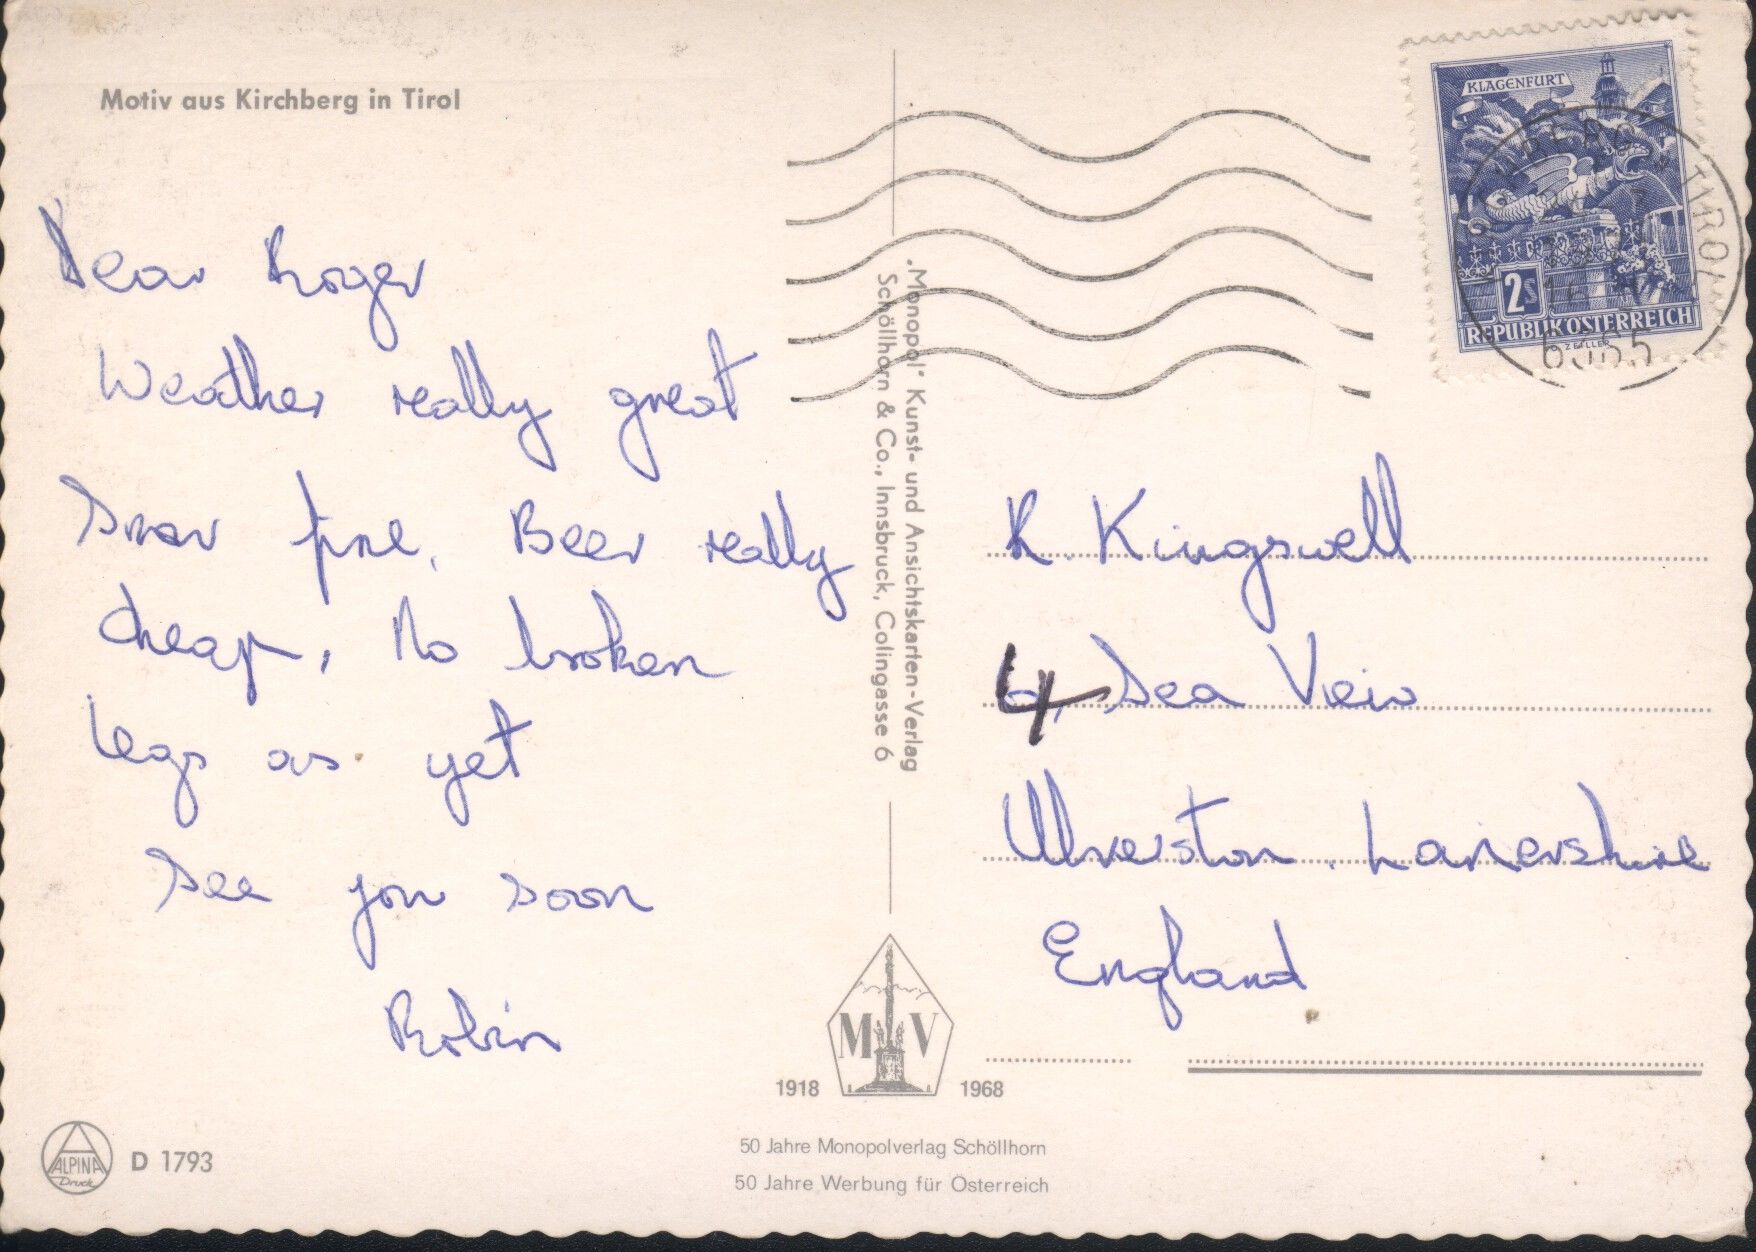 Motiv aus Kirchberg in Tirol
Dear Roger
Weather really great
Snow fine. Beer really
cheap, No broken
legs as yet
See you soon
Robin
ALPINA
Druck
D 1793
„Monopol" Kunst- und Ansichtskarten-Verlag
Schöllhorn & Co., Innsbruck, Colingasse 6
M V
1918 1968
50 Jahre Monopolverlag Schöllhorn
50 Jahre Werbung für Österreich
KLAGENFURT
2S
REPUBLIK ÖSTERREICH
ZEILLER
TIROL
R. Kingswell
4, Sea Veiw
Ulverston. Lanershire
England